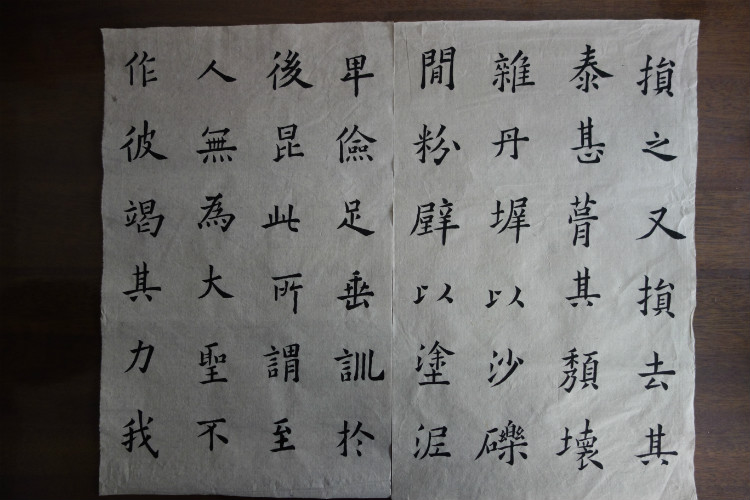 損之又損去其
泰甚葺其頽壞
雜丹墀以沙礫
閒粉壁以塗泥
卑儉足垂訓於
後昆此所謂至
人無為大聖不
作彼竭其力我